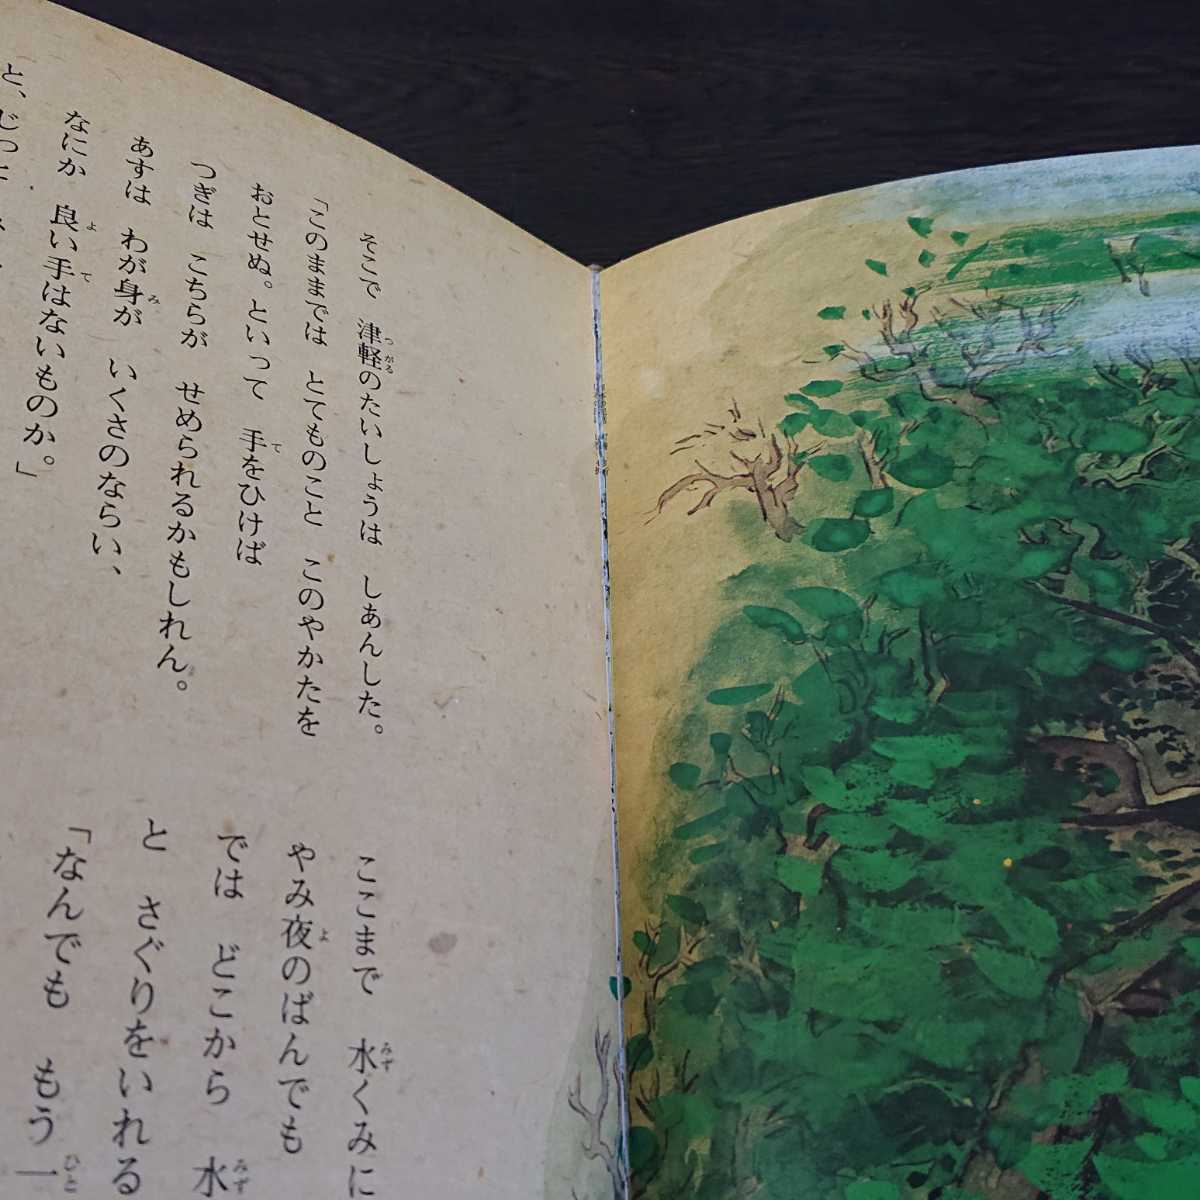 そこで 津軽のたいしょうは しあんした。
「このままでは とてものこと このやかたを
おとせぬ。といって 手をひけば
つぎは こちらが せめられるかもしれん。
あすは わが身が いくさのならい、
なにか 良い手はないものか。」
と、じっと
ここまで 水くみに
やみ夜のばんでも
では どこから 水
と さぐりをいれる
「なんでも もう一